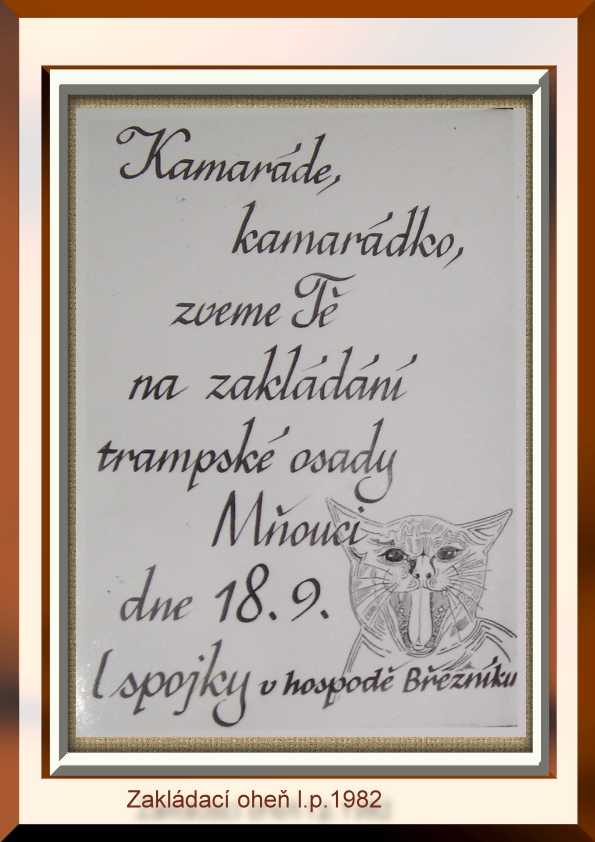 Kamaráde,
kamarádko,
zveme Tě
na zakládání
trampské osady
Mňouci
dne 18.9.
( spojky v hospodě Březníku
Zakládací oheň l.p.1982